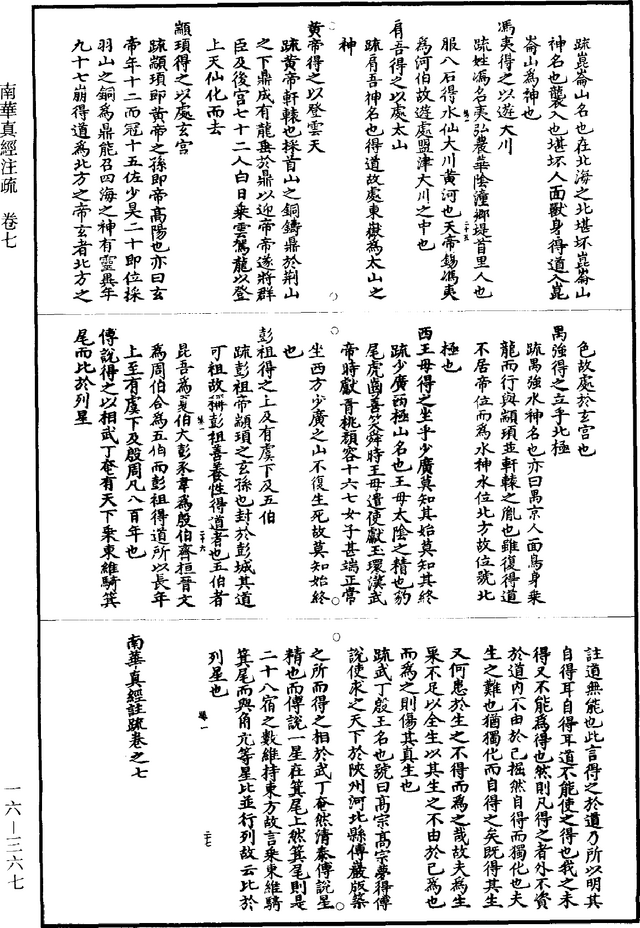 南華真經注疏　卷七
一六—三六七
疏崑崙山名也在北海之北堪坏崑崙山
神名也襲入也堪坏人面獸身得道入崑
崙山為神也
馮夷得之以遊大川
疏姓馮名夷弘農華陰潼鄉堤首里人也
服八石得水仙大川黃河也天帝錫馮夷
為河伯故遊處盟津大川之中也
肩吾得之以處太山
疏肩吾神名也得道故處東嶽為太山之
神
黃帝得之以登雲天
疏黃帝軒轅也採首山之銅鑄鼎於荊山
之下鼎成有龍垂於鼎以迎帝帝遂將群
臣及後宮七十二人白日乘雲駕龍以登
上天仙化而去
顓頊得之以處玄宮
疏顓頊即黃帝之孫即帝高陽也亦曰玄
帝年十二而冠十五佐少昊二十即位採
羽山之銅為鼎能召四海之神有靈異年
九十七崩得道為北方之帝玄者北方之
色故處於玄宮也
禺強得之立乎北極
疏禺強水神名也亦曰禺京人面鳥身乘
龍而行與顓頊並軒轅之胤也雖復得道
不居帝位而為水神水位北方故位號北
極也
西王母得之坐乎少廣莫知其始莫知其終
疏少廣西極山名也王母太陰之精也豹
尾虎齒善笑舜時王母遣使獻玉環漢武
帝時獻青桃顏容十六七女子甚端正常
坐西方少廣之山不復生死故莫知始終
也
彭祖得之上及有虞下及五伯
疏彭祖帝顓頊之玄孫也封於彭城其道
可祖故稱彭祖善養性得道者也五伯者
昆吾為夏伯大彭豕韋為殷伯齊桓晉文
為周伯合為五伯而彭祖得道所以長年
上至有虞下及殷周凡八百年也
傅說得之以相武丁奄有天下乘東維騎箕
尾而比於列星
註道無能也此言得之於道乃所以明其
自得耳自得耳道不能使之得也我之未
得又不能為得也然則凡得之者外不資
於道內不由於己掘然自得而獨化也夫
生之難也猶獨化而自得之矣既得其生
又何患於生之不得而為之哉故夫為生
果不足以全生以其生之不由於己為也
而為之則傷其真生也
疏武丁殷王名也號曰高宗高宗夢得傅
說使求之天下於陝州河北縣傅巖版築
之所而得之相於武丁奄然清泰傅說星
精也而傅說一星在箕尾上然箕尾則是
二十八宿之數維持東方故言乘東維騎
箕尾而與角亢等星比並行列故云比於
列星也
南華真經註疏卷之七